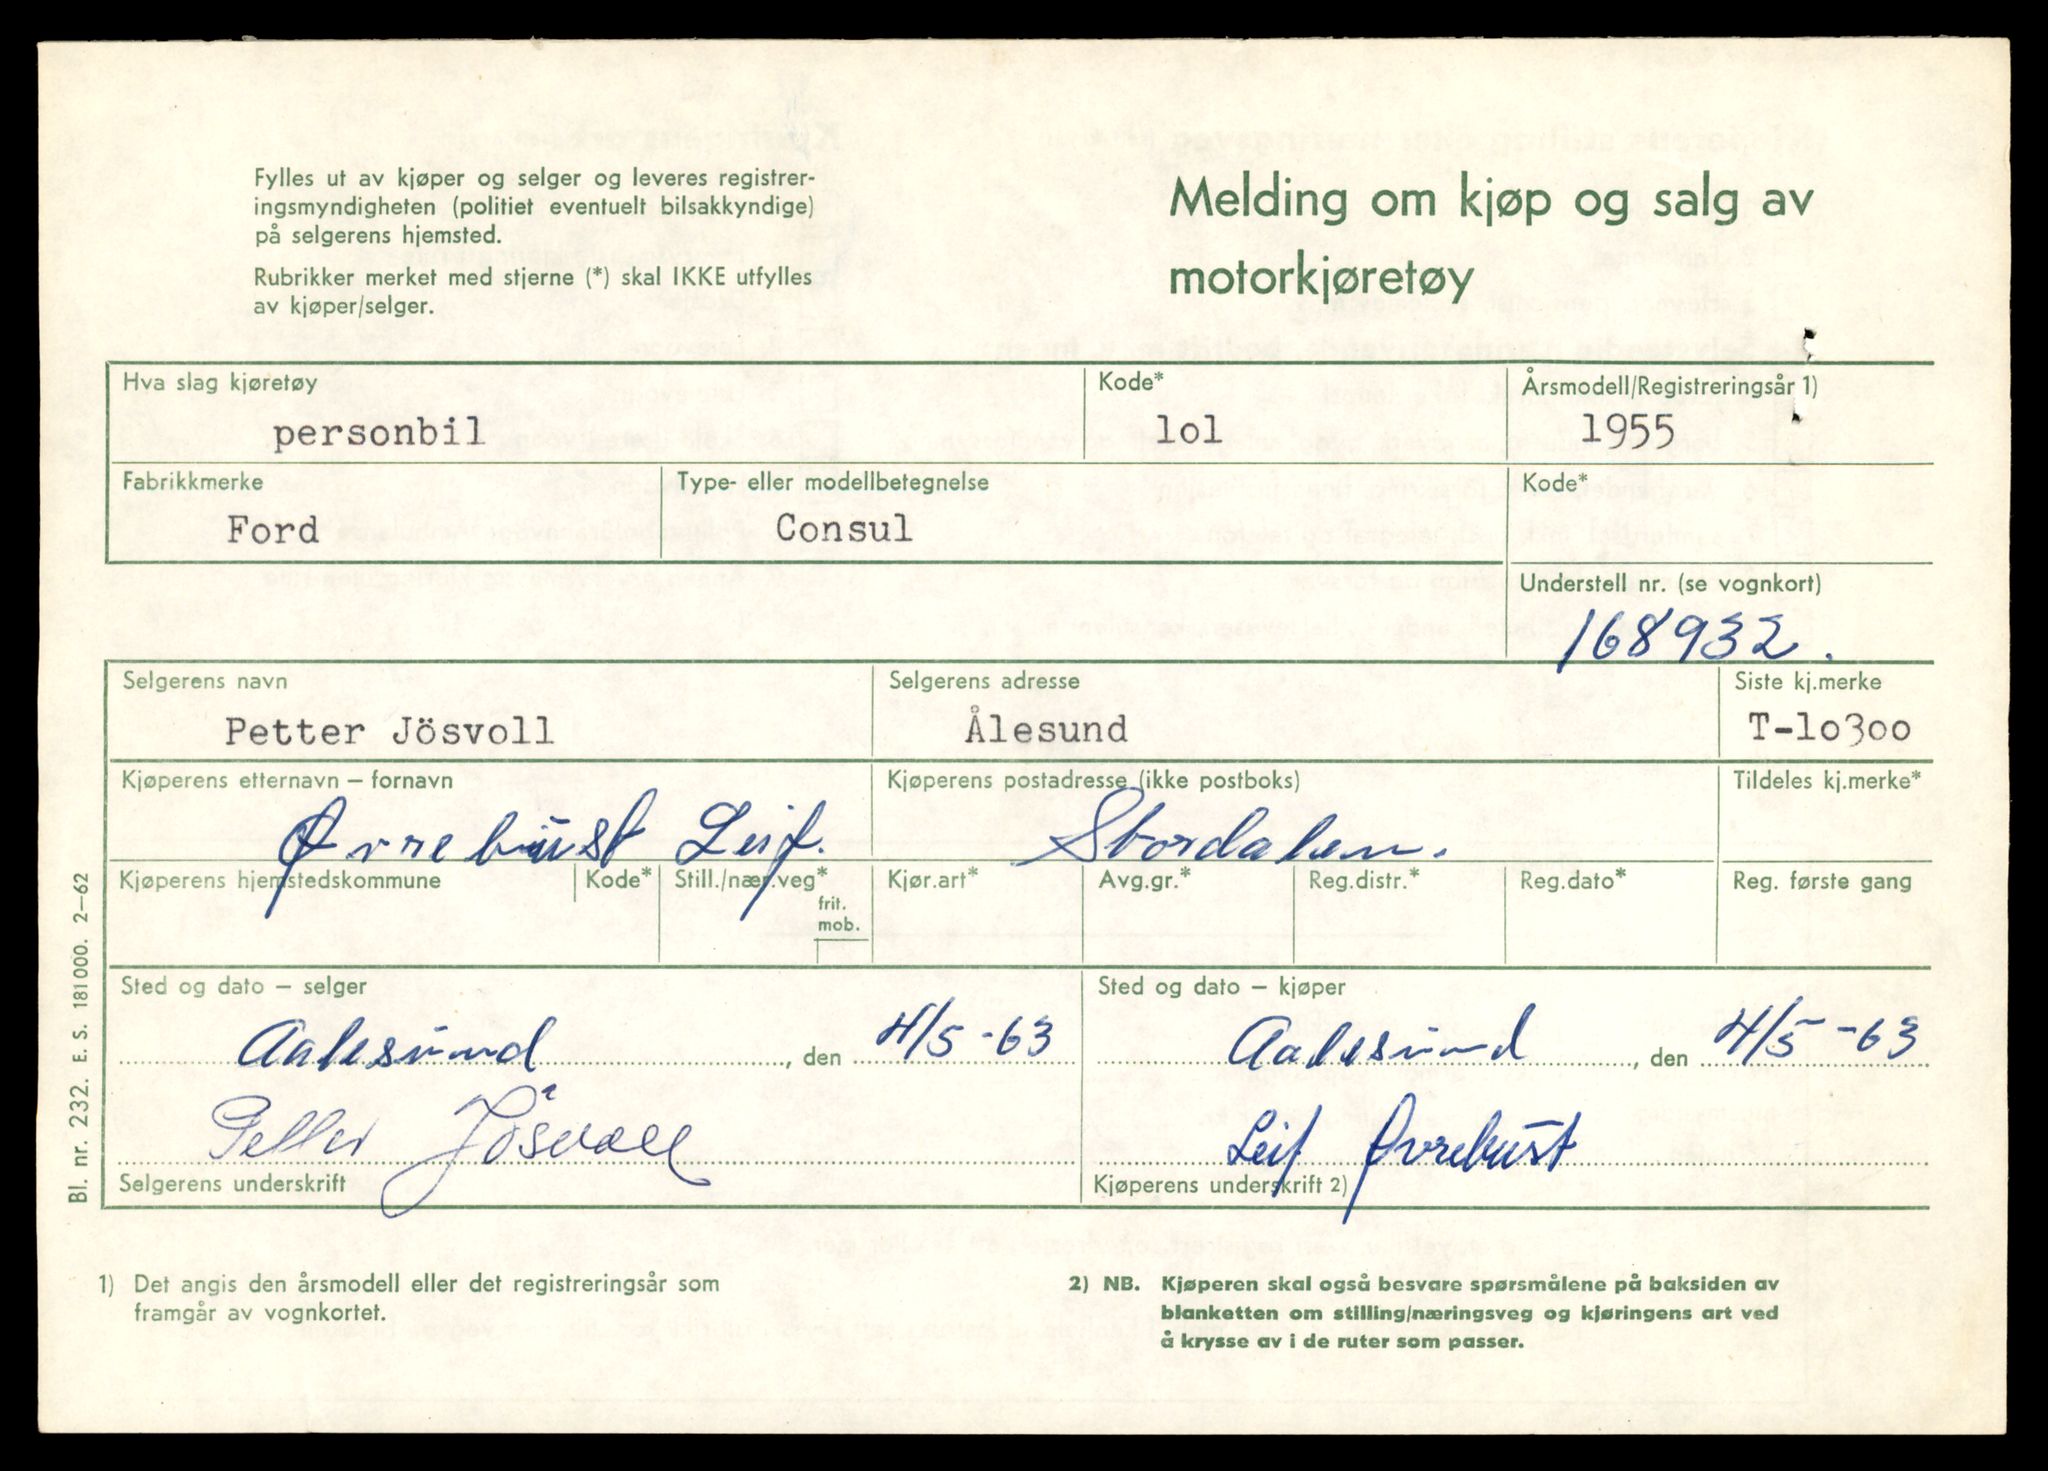 Fylles ut av kjøper og selger og leveres registrer-
ingsmyndigheten (politiet eventuelt bilsakkyndige)
på selgerens hjemsted.
Rubrikker merket med stjerne (*) skal IKKE utfylles
av kjøper/selger.
Melding om kjøp og salg av
motorkjøretøy
Hva slag kjøretøy Kode* Årsmodell/Registreringsår 1)
personbil lol 1955
Fabrikkmerke Type- eller modellbetegnelse Kode*
Ford Consul
Understell nr. (se vognkort)
168932.
Selgerens navn Selgerens adresse Siste kj.merke
Petter Jösvoll Ålesund T-lo3oo
Kjøperens etternavn – fornavn Kjøperens postadresse (ikke postboks) Tildeles kj.merke*
Øvrebust Leif. Stordalen.
Kjøperens hjemstedskommune Kode* Still./nær.veg* Kjør.art* Avg.gr.* Reg.distr.* Reg.dato* Reg. første gang
frit.
mob.
Sted og dato – selger Sted og dato – kjøper
Aalesund, den 4/5-63 Aalesund, den 4/5-63
Petter Jösvoll Leif Øvrebust
Selgerens underskrift Kjøperens underskrift 2)
1) Det angis den årsmodell eller det registreringsår som
framgår av vognkortet.
2) NB. Kjøperen skal også besvare spørsmålene på baksiden av
blanketten om stilling/næringsveg og kjøringens art ved
å krysse av i de ruter som passer.
Bl. nr. 232. E. S. 181000. 2-62